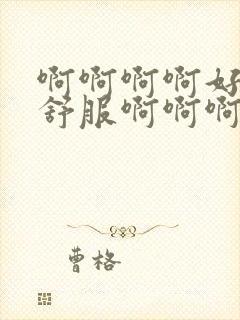 啊啊啊啊好
舒服啊啊啊
曹格